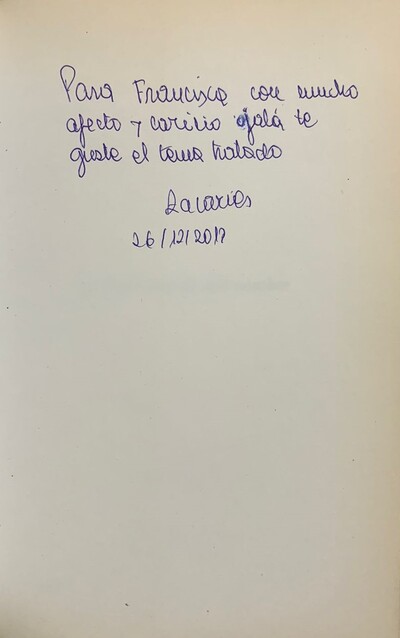 Para Francisca con mucho
afecto y cariño ojalá te
guste el tema tratado
Zacarías
26/12/2017